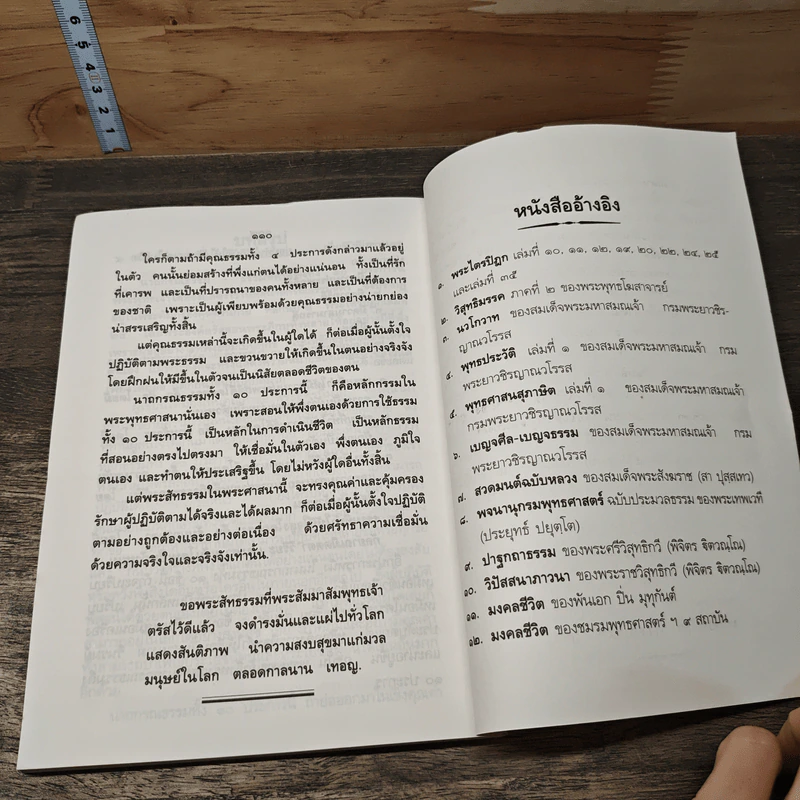 ๑๑๐
ใครก็ตามถ้ามีคุณธรรมทั้ง ๔ ประการดังกล่าวมาแล้วอยู่
ในตัว คนนั้นย่อมสร้างที่พึ่งแก่ตนได้อย่างแน่นอน ทั้งเป็นที่รัก
ที่เคารพ และเป็นที่ปรารถนาของคนทั้งหลาย และเป็นที่ต้องการ
ของชาติ เพราะเป็นผู้เพียบพร้อมด้วยคุณธรรมอย่างน่ายกย่อง
น่าสรรเสริญทั้งสิ้น
แต่คุณธรรมเหล่านี้จะเกิดขึ้นในผู้ใดได้ ก็ต่อเมื่อผู้นั้นตั้งใจ
ปฏิบัติตามพระธรรม และขวนขวายให้เกิดขึ้นในตนอย่างจริงจัง
โดยฝึกฝนให้มีขึ้นในตัวจนเป็นนิสัยตลอดชีวิตของตน
นาถกรณธรรมทั้ง ๑๐ ประการนี้ ก็คือหลักกรรมใน
พระพุทธศาสนานั่นเอง เพราะสอนให้พึ่งตนเองด้วยการใช้ธรรม
ทั้ง ๑๐ ประการนี้ เป็นหลักในการดำเนินชีวิต เป็นหลักธรรม
ที่สอนอย่างตรงไปตรงมา ให้เชื่อมั่นในตัวเอง พึ่งตนเอง ภูมิใจ
ตนเอง และทำตนให้ประเสริฐขึ้น โดยไม่หวังผู้ใดอื่นทั้งสิ้น
แต่พระสัทธรรมในพระศาสนานี้ จะทรงคุณค่าและคุ้มครอง
รักษาผู้ปฏิบัติตามได้จริงและได้ผลมาก ก็ต่อเมื่อผู้นั้นตั้งใจปฏิบัติ
ตามอย่างถูกต้องและอย่างต่อเนื่อง ด้วยศรัทธาความเชื่อมั่น
ด้วยความจริงใจและจริงจังเท่านั้น.
ขอพระสัทธรรมที่พระสัมมาสัมพุทธเจ้า
ตรัสไว้ดีแล้ว จงดำรงมั่นและแผ่ไปทั่วโลก
แสดงสันติภาพ นำความสงบสุขมาแก่มวล
มนุษย์ในโลก ตลอดกาลนาน เทอญ.
หนังสืออ้างอิง
๑. พระไตรปิฎก เล่มที่ ๑๐, ๑๑, ๑๒, ๑๙, ๒๐, ๒๒, ๒๔, ๒๕
และเล่มที่ ๓๕
๒. วิสุทธิมรรค ภาคที่ ๒ ของพระพุทธโฆสาจารย์
๓. นวโกวาท ของสมเด็จพระมหาสมณเจ้า กรมพระยาวชิร-
ญาณวโรรส
๔. พุทธประวัติ เล่มที่ ๑ ของสมเด็จพระมหาสมณเจ้า กรม
พระยาวชิรญาณวโรรส
๕. พุทธศาสนสุภาษิต เล่มที่ ๑ ของสมเด็จพระมหาสมณเจ้า
กรมพระยาวชิรญาณวโรรส
๖. เบญจศีล-เบญจธรรม ของสมเด็จพระมหาสมณเจ้า กรม
พระยาวชิรญาณวโรรส
๗. สวดมนต์ฉบับหลวง ของสมเด็จพระสังฆราช (สา ปุสฺสเทว)
๘. พจนานุกรมพุทธศาสตร์ ฉบับประมวลธรรม ของพระเทพเวที
(ประยุทธ์ ปยุตฺโต)
๙. ปาฐกถาธรรม ของพระศรีวิสุทธิกวี (พิจิตร ฐิตวณฺโณ)
๑๐. วิปัสสนาภาวนา ของพระราชวิสุทธิกวี (พิจิตร ฐิตวณฺโณ)
๑๑. มงคลชีวิต ของพันเอก ปิ่น มุทุกันต์
๑๒. มงคลชีวิต ของชมรมพุทธศาสตร์ ฯ ๙ สถาบัน
6 5 4 3 2 1